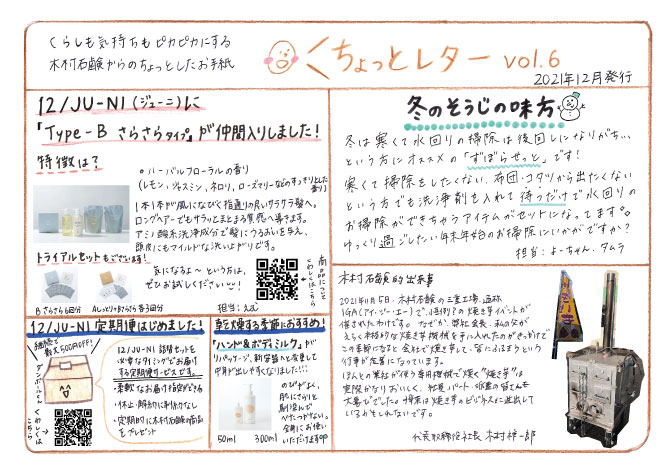 くらしも気持ちもピカピカにする
木村石鹸からのちょっとしたお手紙
くちょっとレター vol.6
2021年12月発行
12/JU-NI(ジューニ)に
「Type-B さらさらタイプ」が仲間入りしました!
特徴は?
ハーバルフローラルの香り
(レモン、ジャスミン、ネロリ、ローズマリーなどのすっきりとした香り)
1本1本が風になびく指通りの良いサラサラ髪へ。
ロングヘアーでもサラッとまとまる質感へ導きます。
アミノ酸系洗浄成分で髪にうるおいを与え、
頭皮にもマイルドな洗い上がりです。
トライアルセットもございます!
気になるよ〜という方は、
ぜひお試しください
B さらさら6回分
Aしっとり&Bさらさら各3回分
担当:えむ
商品について
くわしくはこちら
12/JU-NI 定期便はじめました!
継続で
最大500円OFF!
ダンボールくん
くわしくは
こちら
12/JU-NI 詰替セットを
必要なタイミングでお届け
する定期便サービスです。
・柔軟なお届け設定ができる
・休止・解約に制限なし
・定期的に木村石鹸の商品
をプレゼント
乾燥する季節におすすめ!
「ハンド&ボディミルク」が
リパッケージ、新容器へと変更して
中身が出しやすくなりました!!!
のびがよく、
肌にさらりと
馴染んで
べたつかない。
全身にお使い
いただけます
50ml
300ml
冬のそうじの味方
冬は寒くて水回りの掃除は後回しになりがち...
という方にオススメの「ずぼらせっと」です!
寒くて掃除をしたくない、布団・コタツから出たくない
という方でも洗浄剤を入れて待つだけで水回りの
お掃除ができちゃうアイテムがセットになってます。
ゆっくり過ごしたい年末年始のお掃除にいかがですか?
担当:よーちゃん、タムラ
木村石鹸的出来事
2021年11月5日、木村石鹸の三重工場、通称
IGA(アイ・ジー・エー)で、
催されたわけです。
この季節になると会社で焼き芋して、皆にふるまうという
行事が
代表取締役社長 木村祥一郎